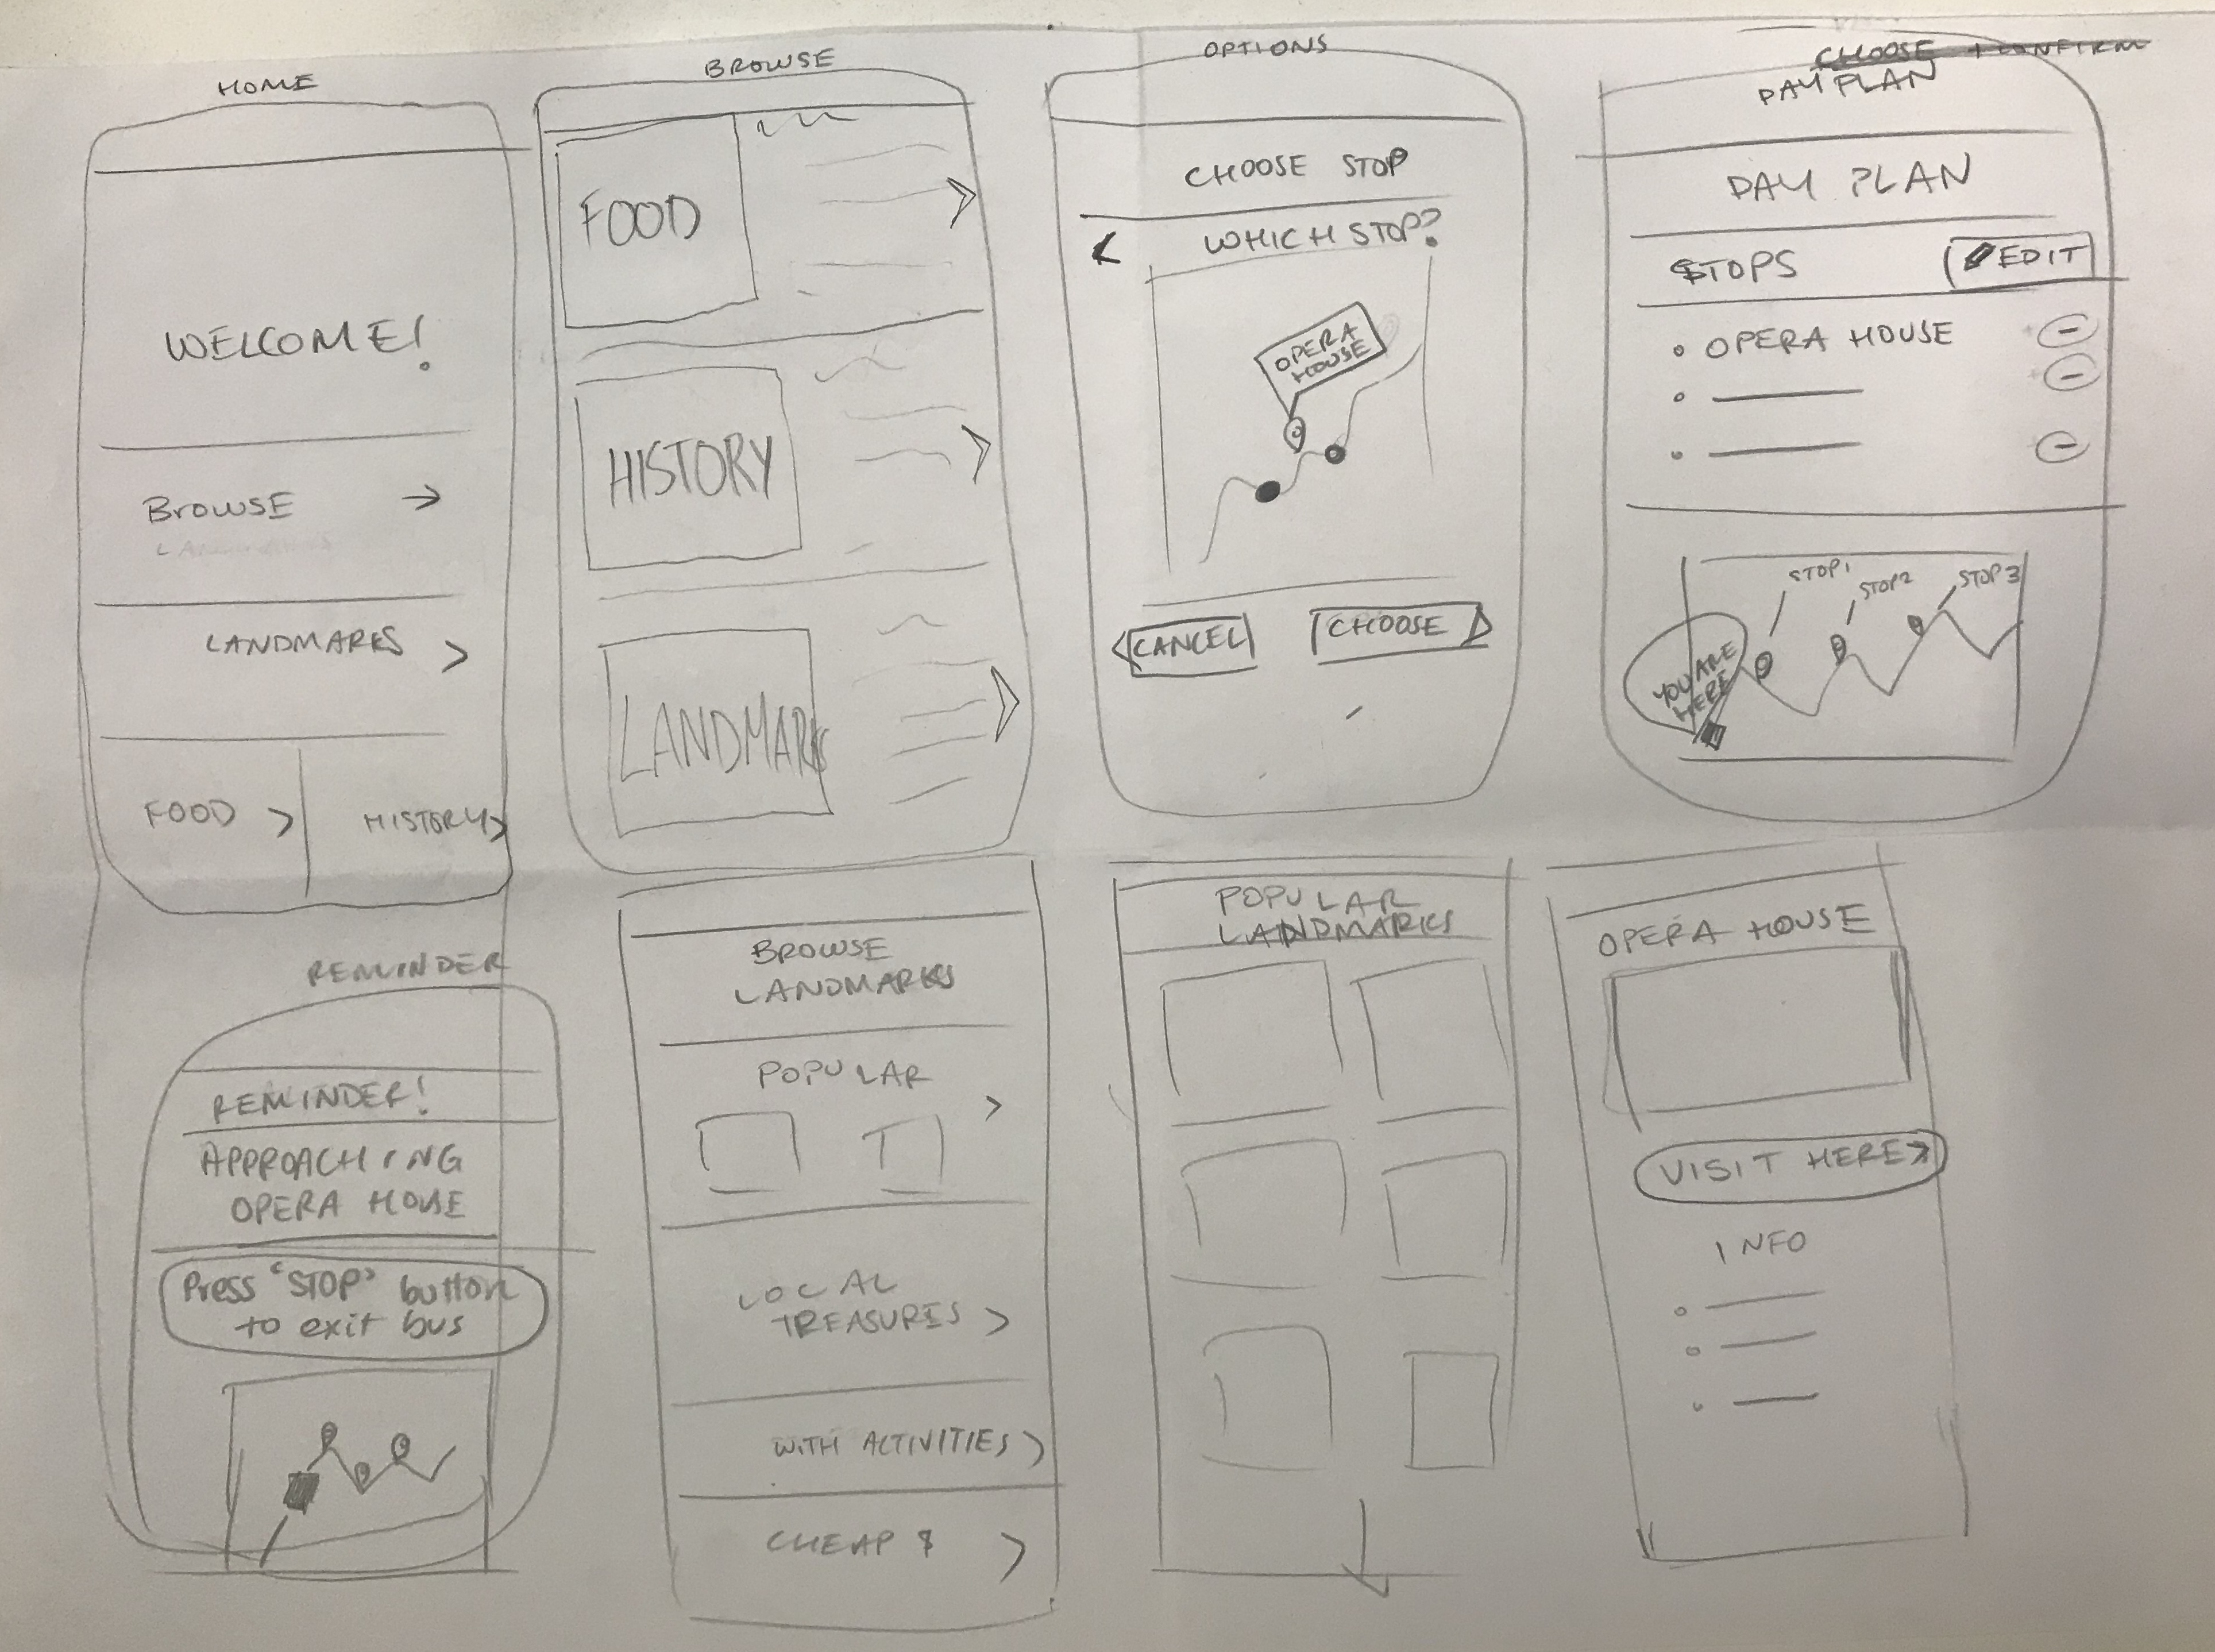 HOME
WELCOME!
BROWSE →
LANDMARKS >
FOOD >
HISTORY >
BROWSE
FOOD
HISTORY
LANDMARKS
OPTIONS
CHOOSE STOP
< WHICH STOP?
OPERA
HOUSE
CANCEL
CHOOSE
CHOOSE + CONFIRM
DAY PLAN
DAY PLAN
STOPS
EDIT
• OPERA HOUSE
STOP 1
STOP 2
STOP 3
YOU ARE
HERE
REMINDER
REMINDER!
APPROACHING
OPERA HOUSE
Press 'STOP' button
to exit bus
BROWSE
LANDMARKS
POPULAR
>
LOCAL
TREASURES >
WITH ACTIVITIES >
CHEAP $ >
POPULAR
LANDMARKS
OPERA HOUSE
VISIT HERE >
INFO